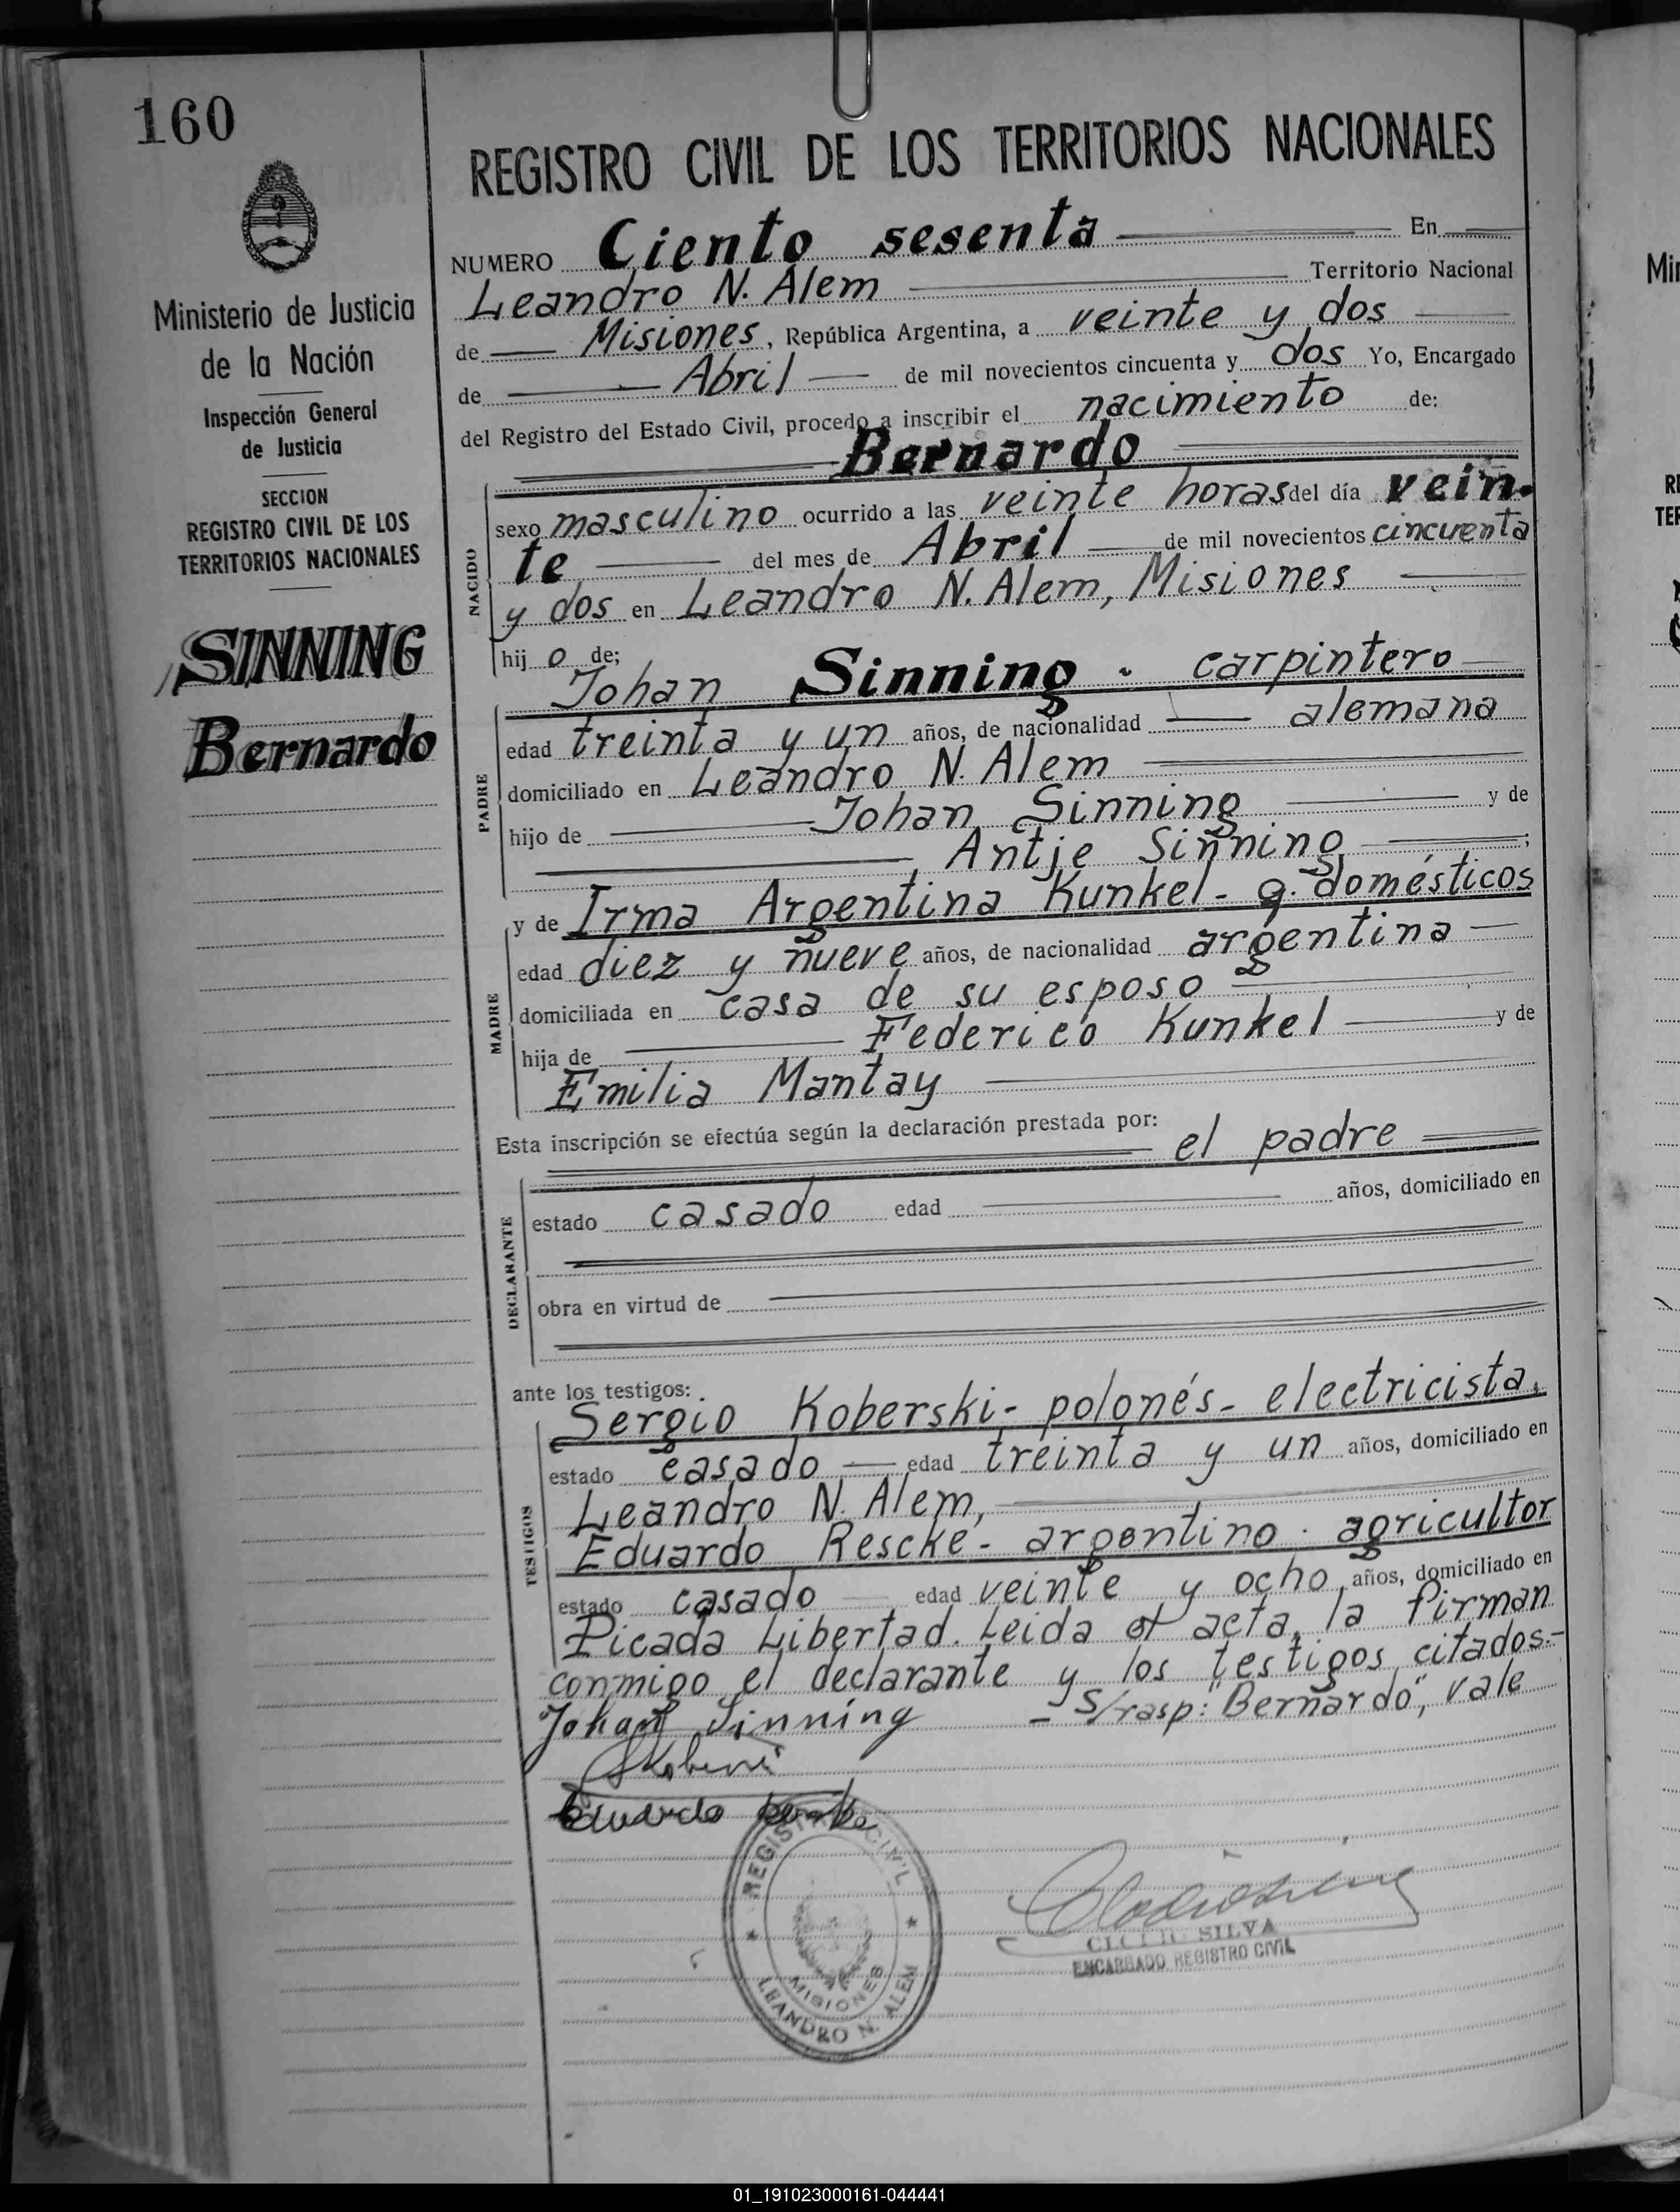 160
Ministerio de Justicia
de la Nación
Inspección General
de Justicia
SECCION
REGISTRO CIVIL DE LOS
TERRITORIOS NACIONALES
SINNING
Bernardo
REGISTRO CIVIL DE LOS TERRITORIOS NACIONALES
NUMERO Ciento sesenta En
Leandro N. Alem Territorio Nacional
de Misiones, República Argentina, a veinte y dos
de Abril de mil novecientos cincuenta y dos Yo, Encargado
del Registro del Estado Civil, procedo a inscribir el nacimiento de:
Bernardo
NACIDO
sexo masculino ocurrido a las veinte horas del día vein-
te del mes de Abril de mil novecientos cincuenta
y dos en Leandro N. Alem, Misiones
hij o de;
PADRE
Johan Sinning - carpintero
edad treinta y un años, de nacionalidad alemana
domiciliado en Leandro N. Alem
hijo de Johan Sinning y de
Antje Sinning ;
MADRE
y de Irma Argentina Kunkel - q. domésticos
edad diez y nueve años, de nacionalidad argentina
domiciliada en casa de su esposo
hija de Federico Kunkel y de
Emilia Mantay
Esta inscripción se efectúa según la declaración prestada por:
el padre
DECLARANTE
estado casado edad años, domiciliado en
obra en virtud de
ante los testigos:
TESTIGOS
Sergio Koberski - polonés - electricista,
estado casado edad treinta y un años, domiciliado en
Leandro N. Alem,
Eduardo Rescke - argentino - agricultor
estado casado edad veinte y ocho, años, domiciliado en
Picada Libertad. Leida el acta, la firman
conmigo el declarante y los testigos citados.-
Johan Sinning - s/rasp: "Bernardo", vale
Eduardo
REGISTRO CIVIL
MISIONES
LEANDRO N. ALEM
SILVA
ENCARGADO REGISTRO CIVIL
Min
01_191023000161-044441